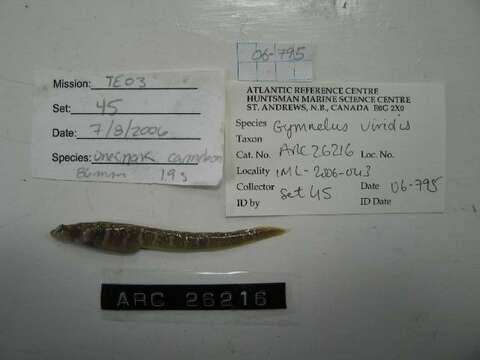 06-795
Mission: TE03
Set: 45
Date: 7/8/2006
Species:
86mm 1.9g
ATLANTIC REFERENCE CENTRE
HUNTSMAN MARINE SCIENCE CENTRE
ST. ANDREWS, N.B., CANADA E0G 2X0
Species Gymnelus viridis
Taxon
Cat. No. ARC26216 Loc. No.
Locality IML-2006-043
Collector Set 45 Date 06-795
ID by ID Date
ARC 26216